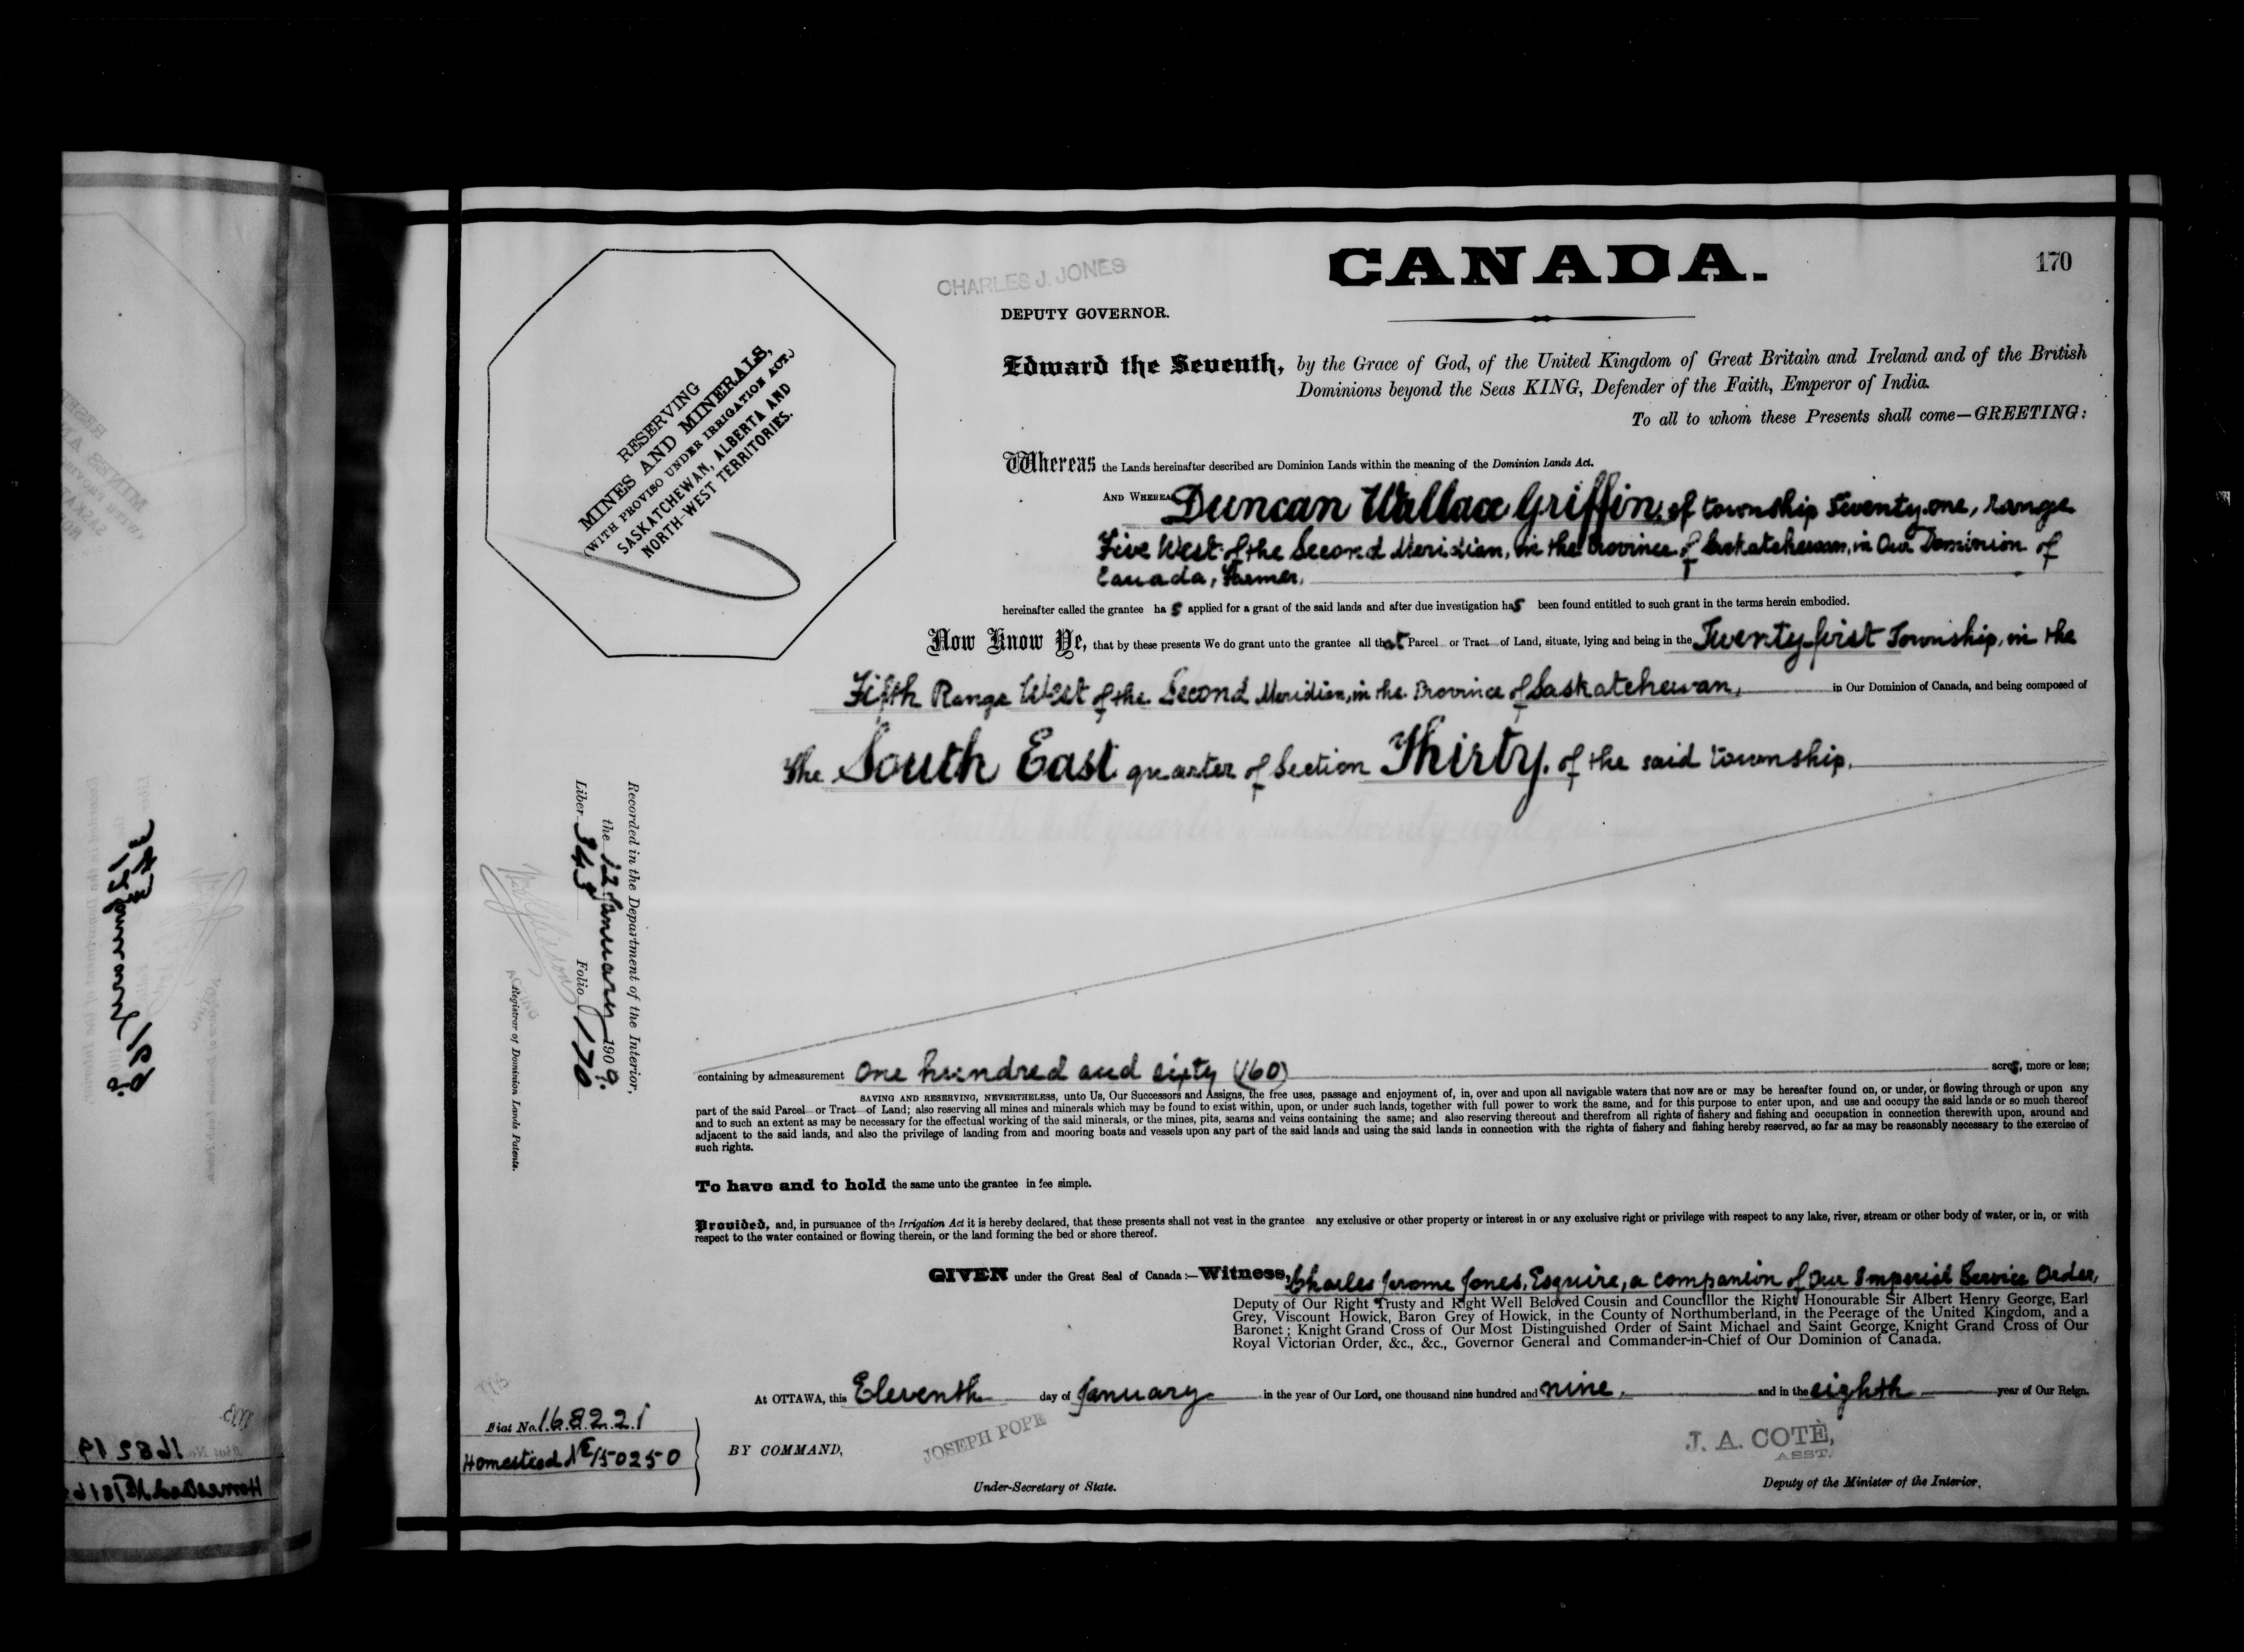 CANADA.
170
CHARLES J. JONES
DEPUTY GOVERNOR.
RESERVING
MINES AND MINERALS,
(WITH PROVISO UNDER IRRIGATION ACT.)
SASKATCHEWAN, ALBERTA AND
NORTH-WEST TERRITORIES.
Edward the Seventh, by the Grace of God, of the United Kingdom of Great Britain and Ireland and of the British
Dominions beyond the Seas KING, Defender of the Faith, Emperor of India.
To all to whom these Presents shall come—GREETING:
Whereas the Lands hereinafter described are Dominion Lands within the meaning of the Dominion Lands Act.
AND WHEREAS Duncan Wallace Griffin, of township Twenty-one, range
Five West of the Second Meridian, in the Province of Saskatchewan, in Our Dominion of
Canada, Farmer,
hereinafter called the grantee has applied for a grant of the said lands and after due investigation has been found entitled to such grant in the terms herein embodied.
Now Know Ye, that by these presents We do grant unto the grantee all that Parcel or Tract of Land, situate, lying and being in the Twenty-first Township, in the
Fifth Range West of the Second Meridian, in the Province of Saskatchewan, in Our Dominion of Canada, and being composed of
The South East quarter of Section Thirty, of the said township.
containing by admeasurement One hundred and sixty (160) acres, more or less;
SAVING AND RESERVING, NEVERTHELESS, unto Us, Our Successors and Assigns, the free uses, passage and enjoyment of, in, over and upon all navigable waters that now are or may be hereafter found on, or under, or flowing through or upon any
part of the said Parcel or Tract of Land; also reserving all mines and minerals which may be found to exist within, upon, or under such lands, together with full power to work the same, and for this purpose to enter upon, and use and occupy the said lands or so much thereof
and to such an extent as may be necessary for the effectual working of the said minerals, or the mines, pits, seams and veins containing the same; and also reserving thereout and therefrom all rights of fishery and fishing and occupation in connection therewith upon, around and
adjacent to the said lands, and also the privilege of landing from and mooring boats and vessels upon any part of the said lands and using the said lands in connection with the rights of fishery and fishing hereby reserved, so far as may be reasonably necessary to the exercise of
such rights.
To have and to hold the same unto the grantee in fee simple.
Provided, and, in pursuance of the Irrigation Act it is hereby declared, that these presents shall not vest in the grantee any exclusive or other property or interest in or any exclusive right or privilege with respect to any lake, river, stream or other body of water, or in, or with
respect to the water contained or flowing therein, or the land forming the bed or shore thereof.
GIVEN under the Great Seal of Canada:—Witness, Charles Jerome Jones, Esquire, a companion of Our Imperial Service Order,
Deputy of Our Right Trusty and Right Well Beloved Cousin and Councillor the Right Honourable Sir Albert Henry George, Earl
Grey, Viscount Howick, Baron Grey of Howick, in the County of Northumberland, in the Peerage of the United Kingdom, and a
Baronet; Knight Grand Cross of Our Most Distinguished Order of Saint Michael and Saint George, Knight Grand Cross of Our
Royal Victorian Order, &c., &c., Governor General and Commander-in-Chief of Our Dominion of Canada.
At OTTAWA, this Eleventh day of January in the year of Our Lord, one thousand nine hundred and nine, and in the eighth year of Our Reign.
BY COMMAND,
JOSEPH POPE
Under-Secretary of State.
J. A. COTÈ,
ASST.
Deputy of the Minister of the Interior,
Fiat No. 168221
Homestead No 150250
Recorded in the Department of the Interior,
the 12 January 1909.
Liber 343 Folio 170
ACTING
Registrar of Dominion Lands Patents.